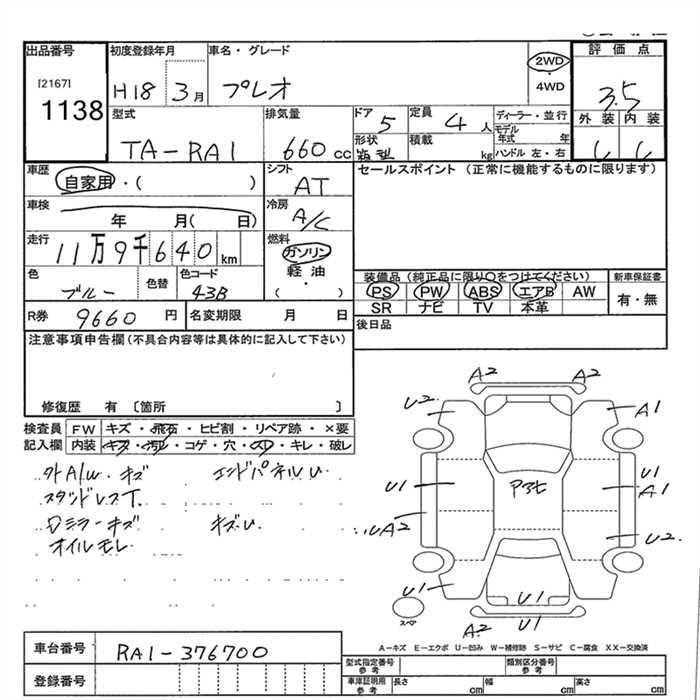 出品番号
[2167]
1138
初度登録年月
H18 3月
車名・グレード
プレオ
2WD
・
4WD
評価点
3.5
外装 内装
型式
TA-RA1
排気量
660 cc
ドア 5
定員 4 人
ディーラー・並行
モデル年式 年
ハンドル 左・右
形状
箱型
積載 kg
車歴
自家用・( )
シフト
AT
セールスポイント (正常に機能するものに限ります)
車検
年 月( 日)
冷房
A/C
走行
11万9千640 km
燃料
ガソリン
軽油
( ・ )
色
ブルー
色替
色コード
43B
装備品(純正品に限り○をつけてください)
PS PW ABS エアB AW
SR ナビ TV 本革
新車保証書
有・無
R券 9660 円
名変期限 月 日
後日品
注意事項申告欄(不具合内容等は具体的に記入して下さい)
修復歴 有 〔箇所 〕
検査員記入欄
FW キズ・飛石・ヒビ割・リペア跡・×要
内装 キズ・汚レ・コゲ・穴・スレ・キレ・破レ
外A/W.キズ
エンドパネルU
スタッドレスT.
Dミラーキズ
キズU
オイルモレ
A2 A2
U2 A1
U1 P3モ U1
A1
UA2 U2
U1 U1
A2 U1
スペア
A-キズ E-エクボ U-凹み W-補修跡 S-サビ C-腐食 XX-交換済
車台番号 RA1-376700
登録番号
型式指定番号
参考
類別区分番号
参考
車庫証明用
参考
長さ cm 幅 cm 高さ cm